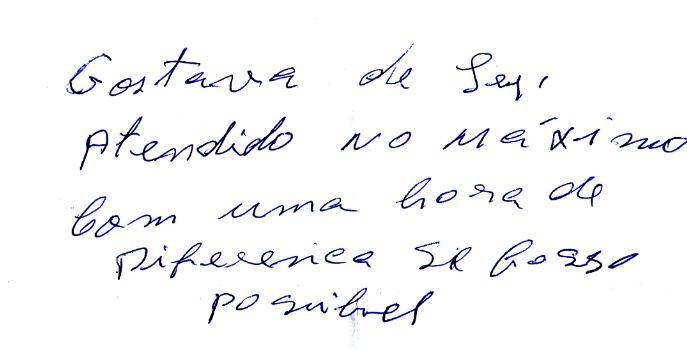 Gostava de Sey,
Atendido no máximo
Com uma hora de
Diferenca se
possivel